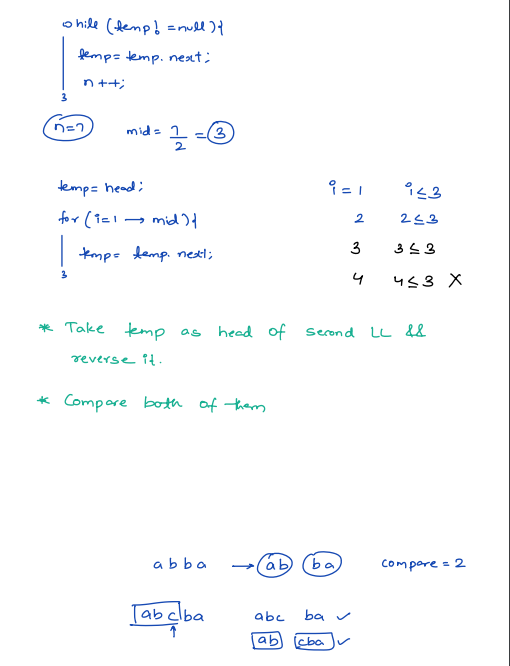 while (temp! = null){
temp = temp. next;
n ++;
}
n=7 mid = 7/2 = 3
temp = head;
for (i=1 → mid){
temp = temp. next;
}
i = 1 i ≤ 3
2 2 ≤ 3
3 3 ≤ 3
4 4 ≤ 3 X
* Take temp as head of second LL &&
reverse it.
* Compare both of them
abba → ab ba compare = 2
abcba abc ba ✓
↑ ab cba ✓